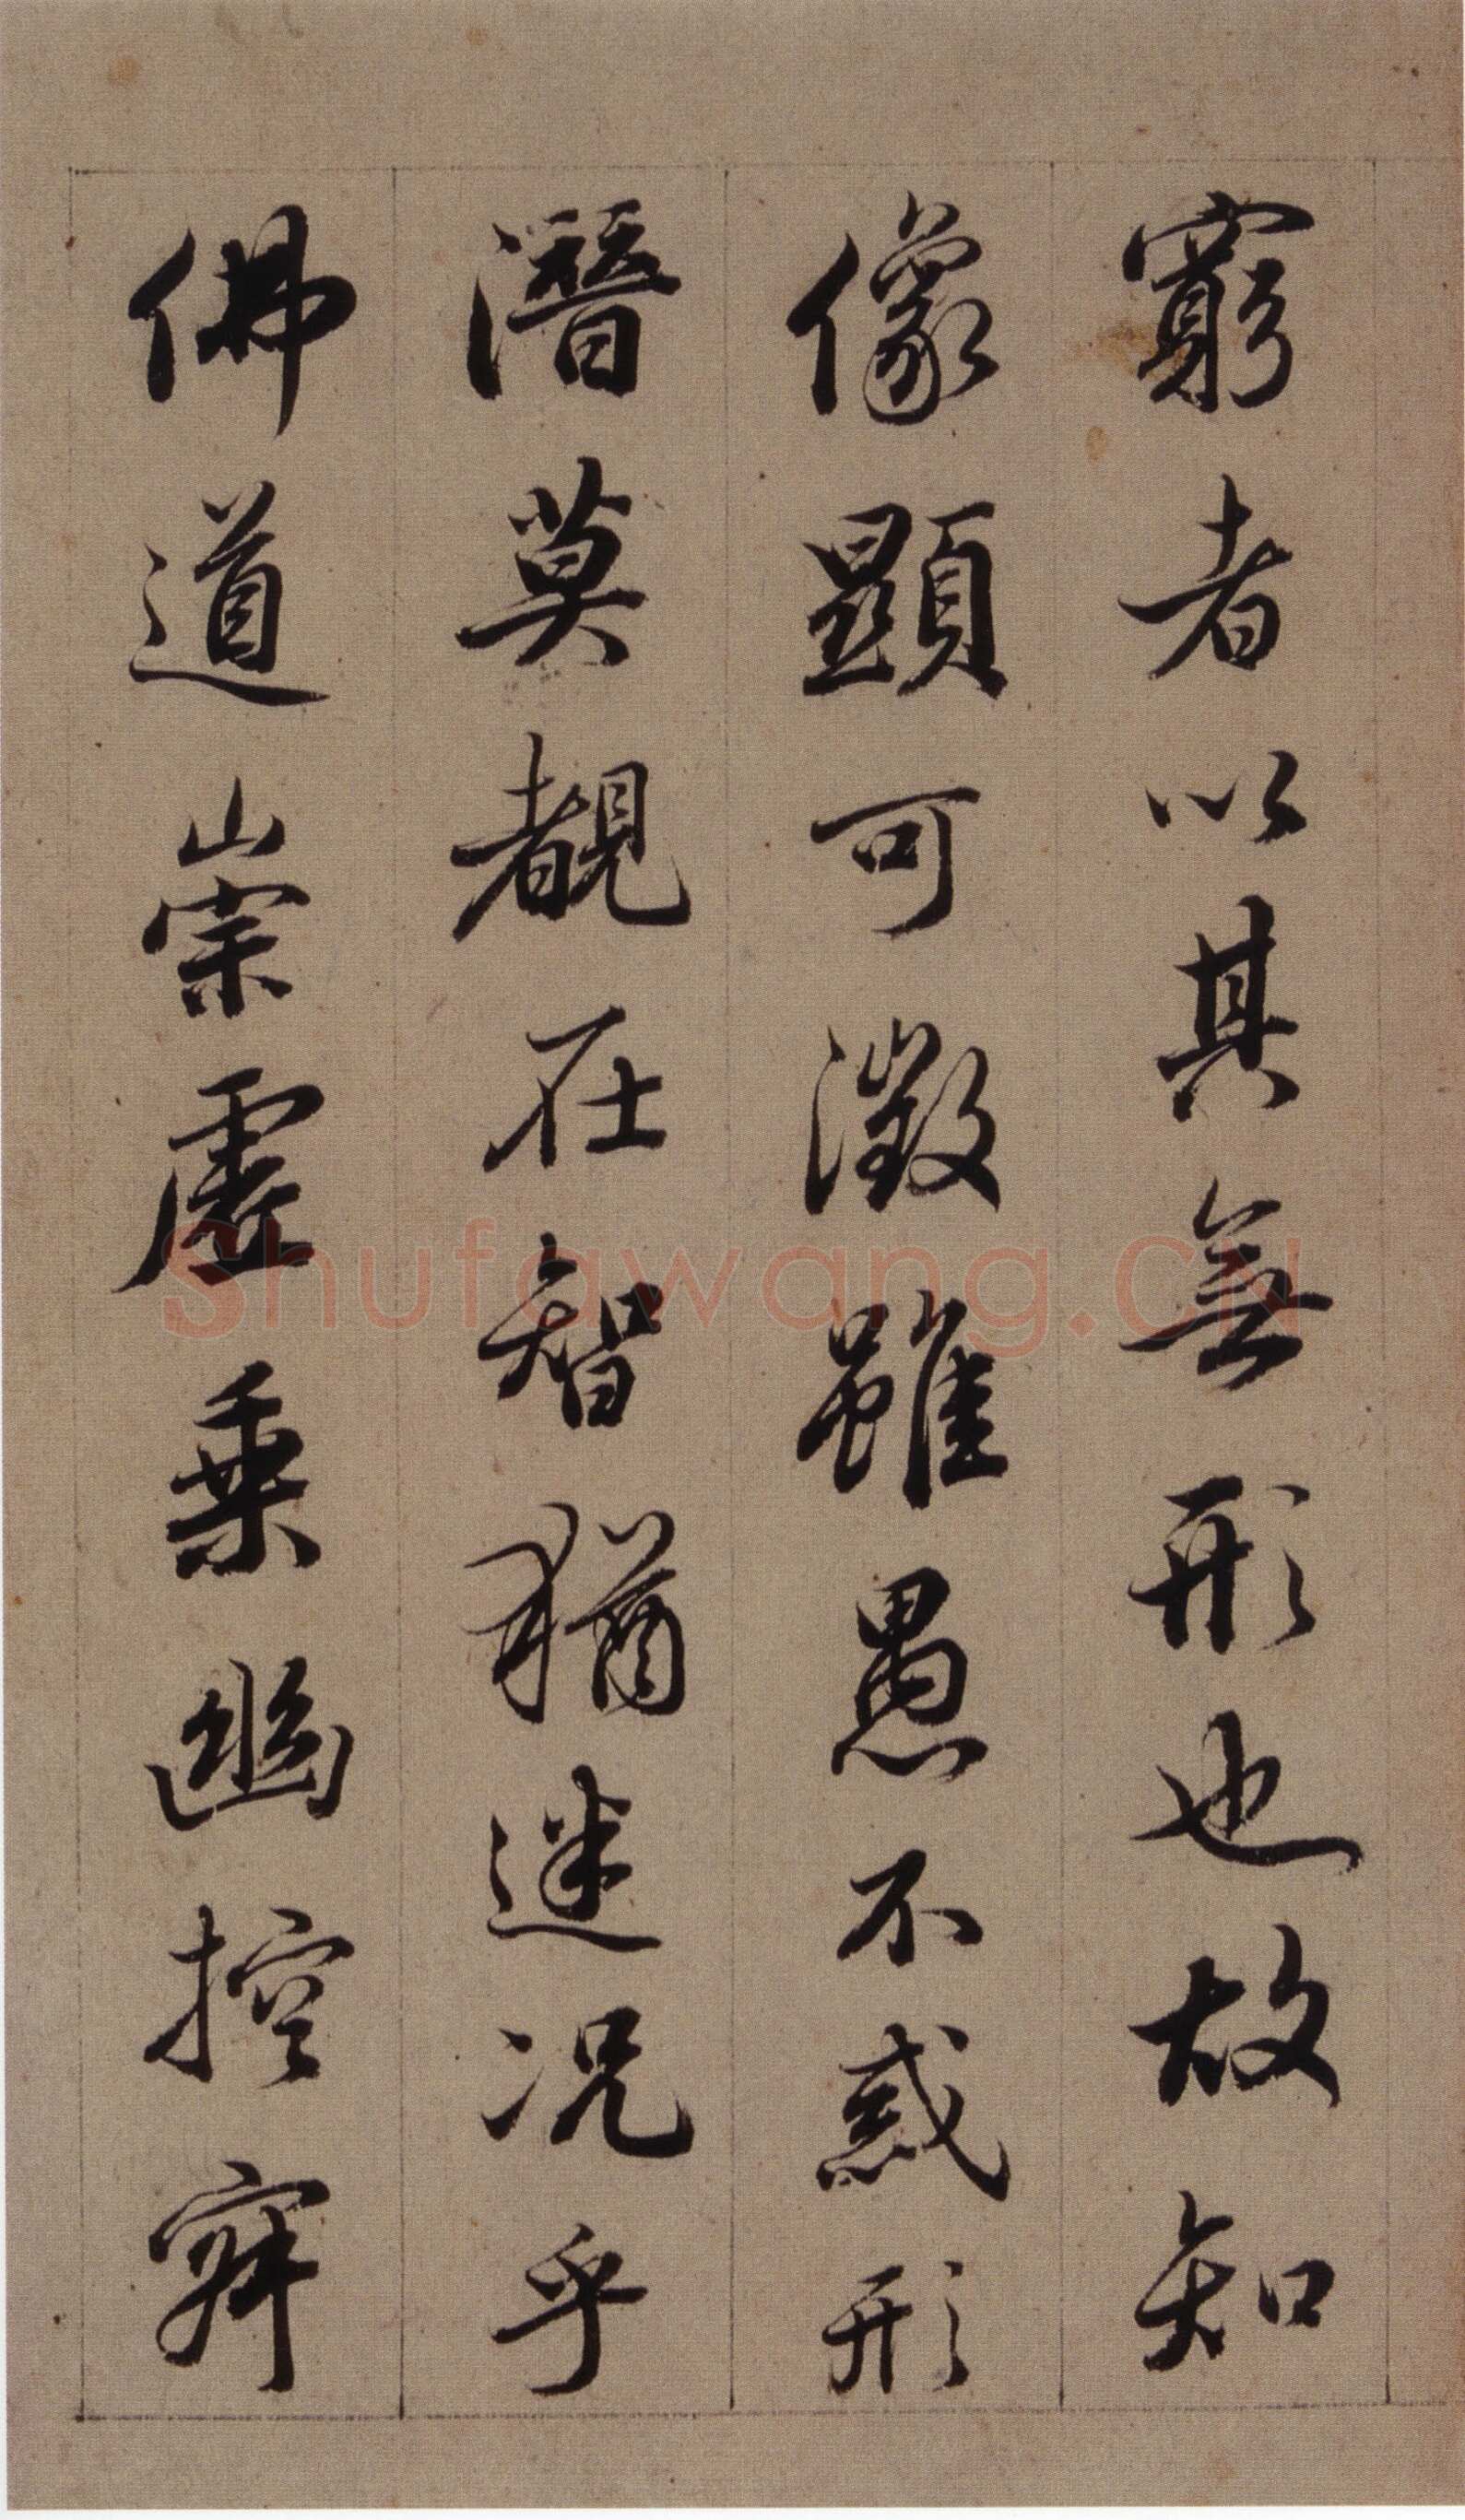 窮者以其無形也故知
像顯可徵雖愚不惑形
潛莫覩在智猶迷况乎
佛道崇虛乗幽控寂
shufawang.cn